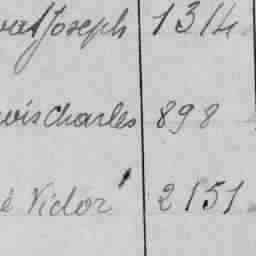 Joseph 1314
Charles 898
é Victor 2151